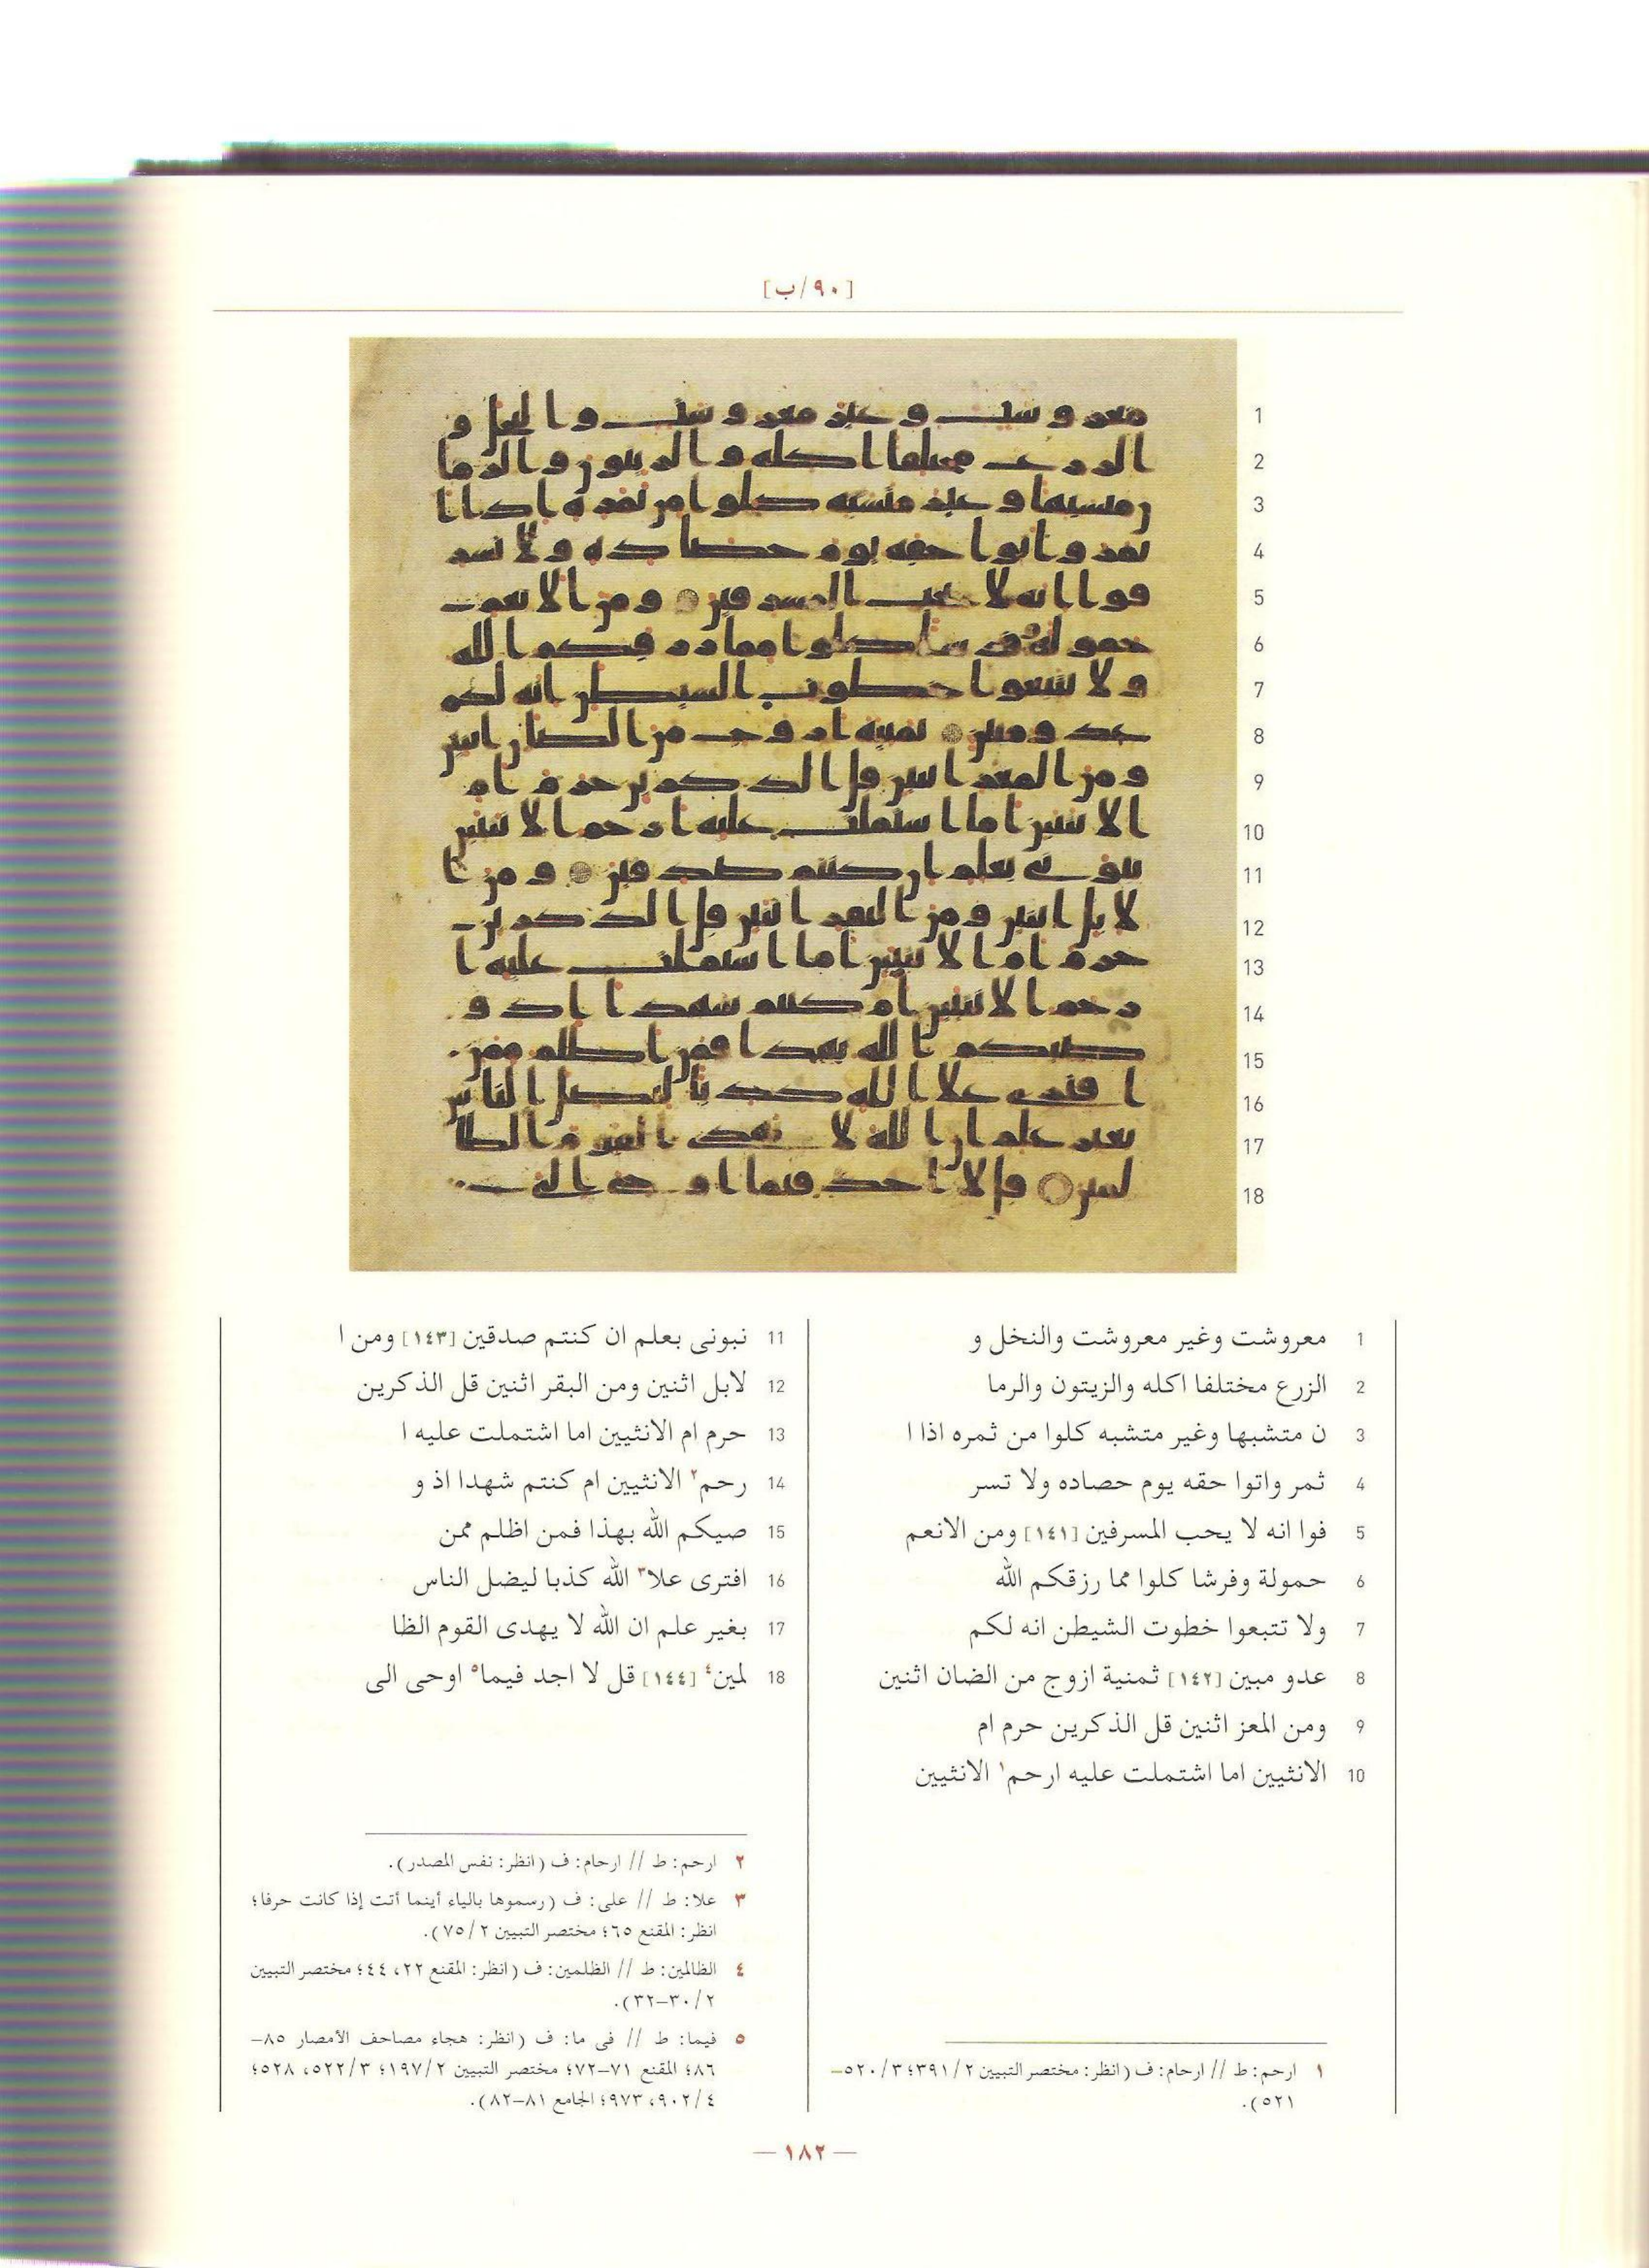 [٩٠/ب]
1 معروشت وغير معروشت والنخل و
2 الزرع مختلفا اكله والزيتون والرما
3 ن متشبها وغير متشبه كلوا من ثمره اذا ا
4 ثمر واتوا حقه يوم حصاده ولا تسر
5 فوا انه لا يحب المسرفين [١٤١] ومن الانعم
6 حمولة وفرشا كلوا مما رزقكم الله
7 ولا تتبعوا خطوت الشيطن انه لكم
8 عدو مبين [١٤٢] ثمنية ازوج من الضان اثنين
9 ومن المعز اثنين قل الذكرين حرم ام
10 الانثيين اما اشتملت عليه ارحم١ الانثيين
١ ارحم: ط // ارحام: ف (انظر: مختصر التبيين ٢/٣٩١؛ ٣/٥٢٠–
٥٢١).
11 نبونى بعلم ان كنتم صدقين [١٤٣] ومن ا
12 لابل اثنين ومن البقر اثنين قل الذكرين
13 حرم ام الانثيين اما اشتملت عليه ا
14 رحم٢ الانثيين ام كنتم شهدا اذ و
15 صيكم الله بهذا فمن اظلم ممن
16 افترى علا٣ الله كذبا ليضل الناس
17 بغير علم ان الله لا يهدى القوم الظا
18 لمين٤ [١٤٤] قل لا اجد فيما٥ اوحى الى
٢ ارحم: ط // ارحام: ف (انظر: نفس المصدر).
٣ علا: ط // على: ف (رسموها بالياء أينما أتت إذا كانت حرفا؛
انظر: المقنع ٦٥؛ مختصر التبيين ٢/٧٥).
٤ الظالمين: ط // الظلمين: ف (انظر: المقنع ٢٢، ٤٤؛ مختصر التبيين
٢/٣٠–٣٢).
٥ فيما: ط // فى ما: ف (انظر: هجاء مصاحف الأمصار ٨٥–
٨٦؛ المقنع ٧١–٧٢؛ مختصر التبيين ٢/١٩٧؛ ٣/٥٢٢، ٥٢٨؛
٤/٩٠٢، ٩٧٣؛ الجامع ٨١–٨٢).
— ١٨٢ —